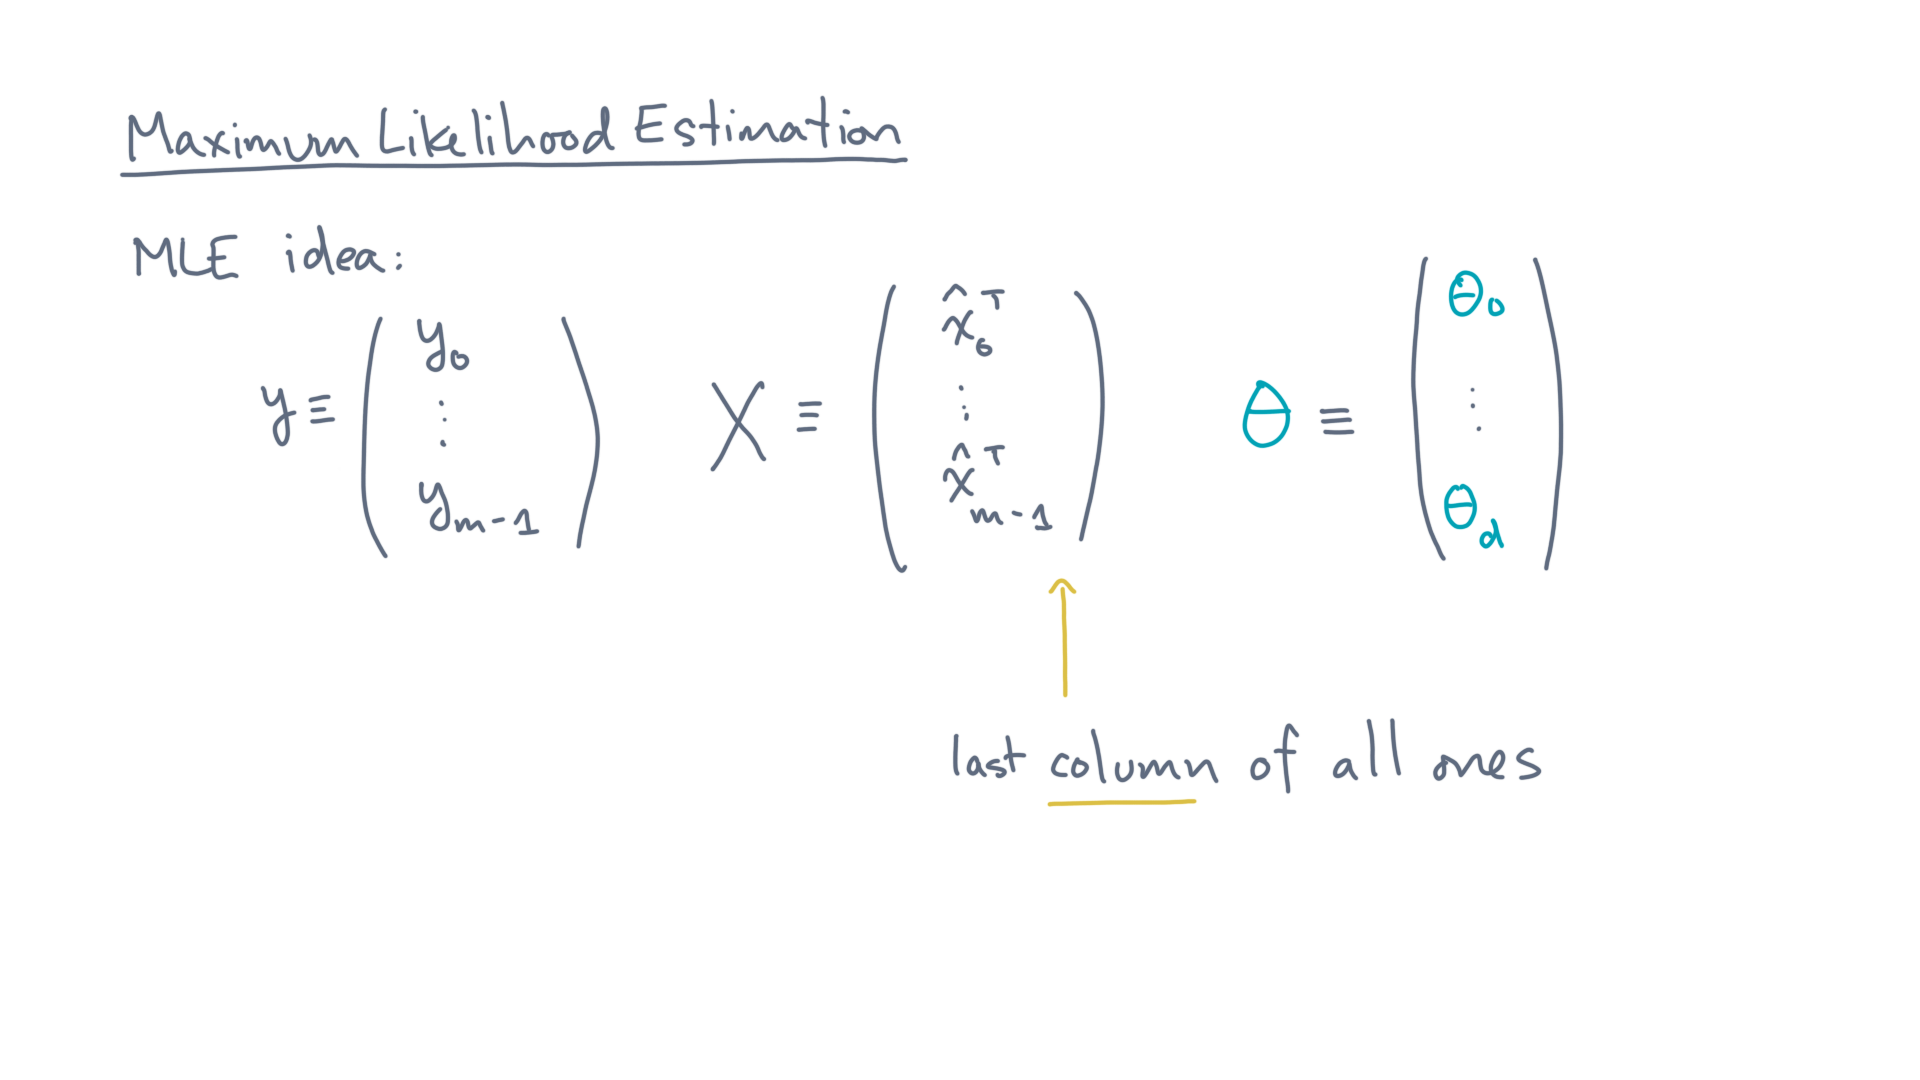 Maximum Likelihood Estimation
MLE idea:
y ≡ ( y₀ ⋮ y_{m-1} )   X ≡ ( x̂₀ᵀ ⋮ x̂_{m-1}ᵀ )   θ ≡ ( θ₀ ⋮ θ_d )
last column of all ones